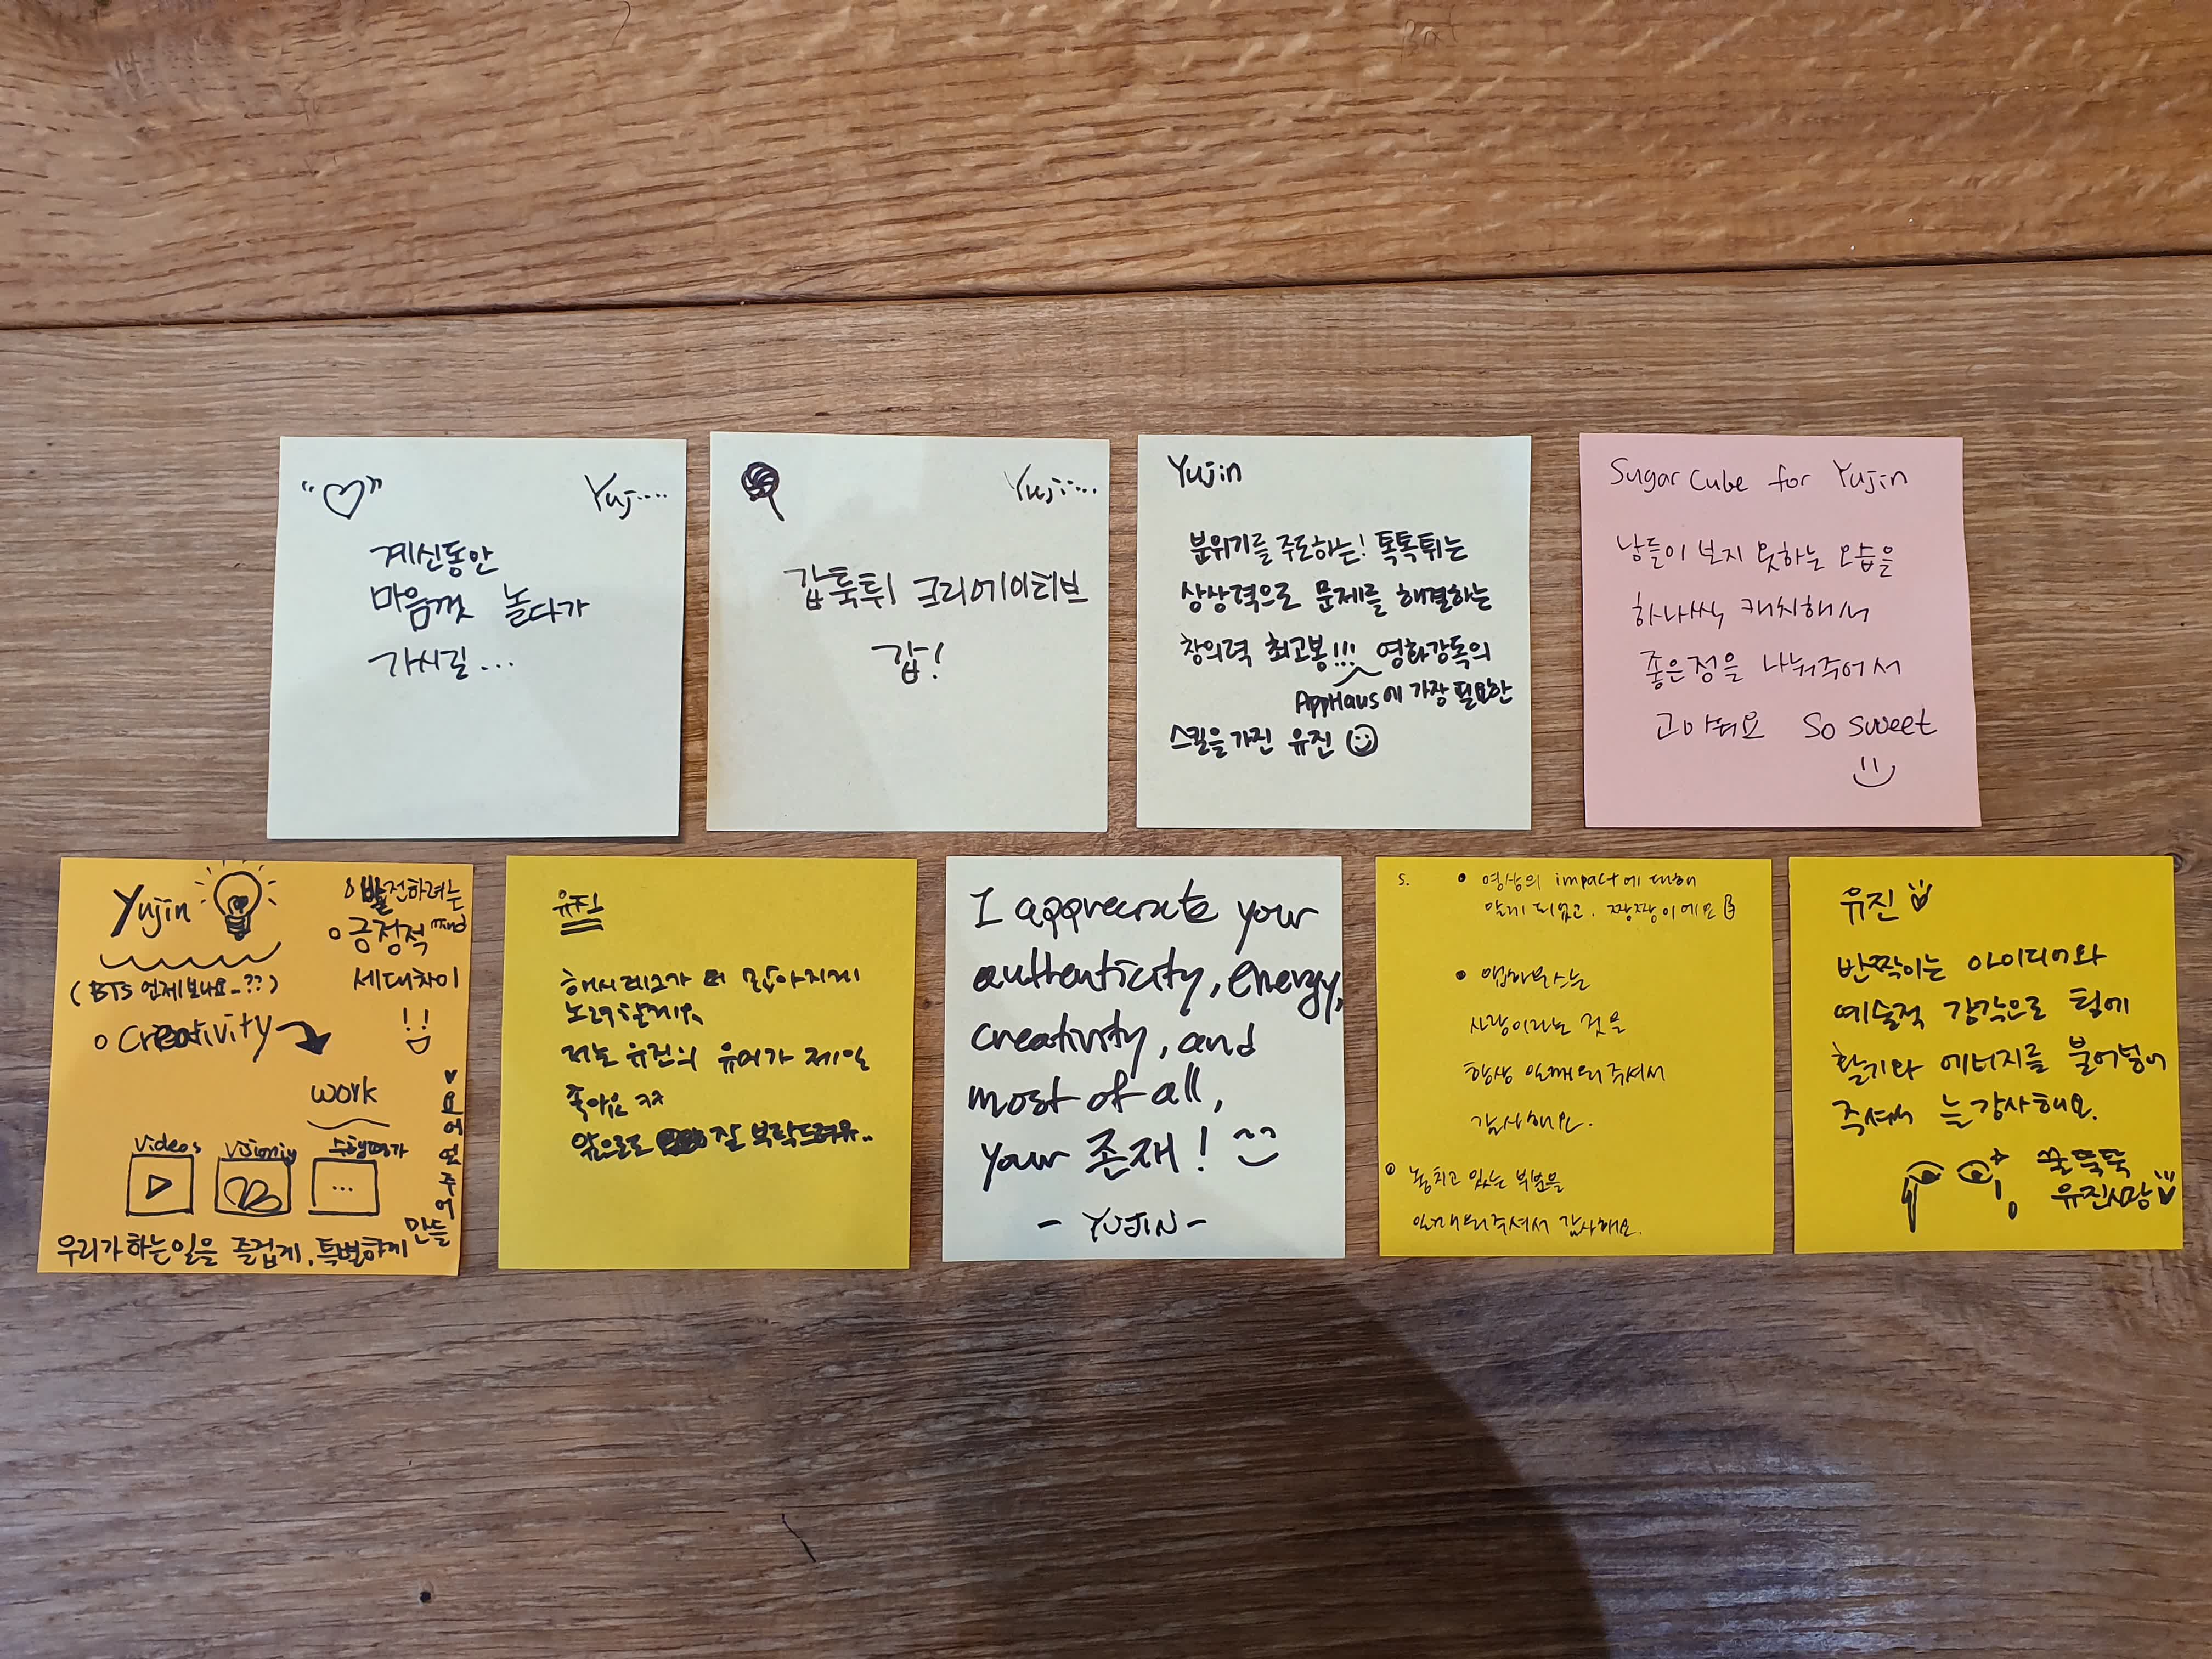 Yuj....
계신동안
마음껏 놀다가
가시길...
Yuji....
갑툭튀 크리에이티브
갑!
Yujin
분위기를 주도하는! 톡톡튀는
상상력으로 문제를 해결하는
창의력 최고봉!!! 영화감독의
AppHaus에 가장 필요한
스킬을 가진 유진
Sugar Cube for Yujin
남들이 보지 못하는 모습을
하나씩 캐치해서
좋은정을 나눠주어서
고마워요 So sweet
Yujin
(BTS 언제보나요_??)
creativity
work
videos
visioning
수행평가
발전하려는
긍정적 mind
세대차이
!!
우리가 하는 일을 즐겁게, 특별하게 만들
어주연어요
유진
해시태그가 더 많아지게
노력할게요
저는 유진의 유머가 제일
좋아요 ㅋㅋ
앞으로도 잘 부탁드려유..
I appreciate your
authenticity, energy,
creativity, and
most of all,
your 존재!
- YUJIN -
s.
영상의 impact에 대해
알게 되었고, 짱짱이에요
앱하우스는
사랑이라는 것을
항상 일깨워주셔서
감사해요.
놓치고 있는 부분을
일깨워주셔서 감사해요.
유진
반짝이는 아이디어와
예술적 감각으로 팀에
활기와 에너지를 불어넣어
주셔서 늘 감사해요.
꿀뚝뚝
유진사랑